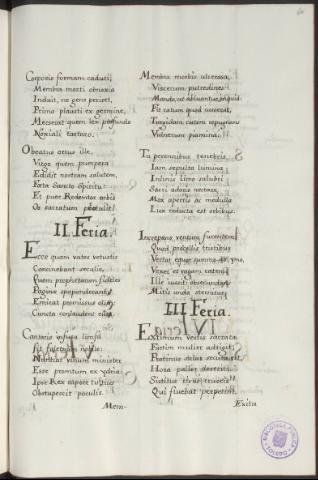 Corporis formam caduci,
Membra morti obnoxia
Induit, ne gens periret,
Primo plasti ex germine,
Merserat quem lex profundo
Noxiali tartaro.
O beatus ortus ille,
Virgo quum puerpera
Edidit nostram salutem,
Feta Sancto Spiritu
Et puer Redemtor orbis
Os sacratum protulit.
II. Feria.
Ecce quem vates vetustis
Concinebant seculis,
Quem prophetarum fideles
Paginæ spoponderant,
Emicat promissus olim:
Cuncta conlaudent eum.
Cantharis infusa limfa
Fit falernum nobile:
Nuntiat vinum minister
Esse promtum ex ydria:
Ipse Rex sapore tinctis
Obstupescit poculis.
Mem-
Membra morbis ulcerosa,
Viscerum putredines
Mando, ut abluantur, inquit
Fit ratum quod iusserat,
Turgidam cutem repurgant
Vulnerum piamina.
Tu perennibus tenebris
Iam sepulta lumina
Inlinis limo salubri
Sacri et oris nectare,
Mox apertis hac medella
Lux reducta est orbibus.
Increpas ventum furentem,
Quod procellis tristibus
Vertat æquor
Vexet et vagam ratem:
Ille iussis obsecundat,
Mitis unda sternitur.
III. Feria.
Extimum vestis sacratæ
Furtim mulier adtigit:
Protinus salus secuta est,
Hora pallor deserit:
Sistitur rivus cruoris
Qui fluebat perpetim.
Exitu
BIBLIOTECA PUBLICA
TOLEDO